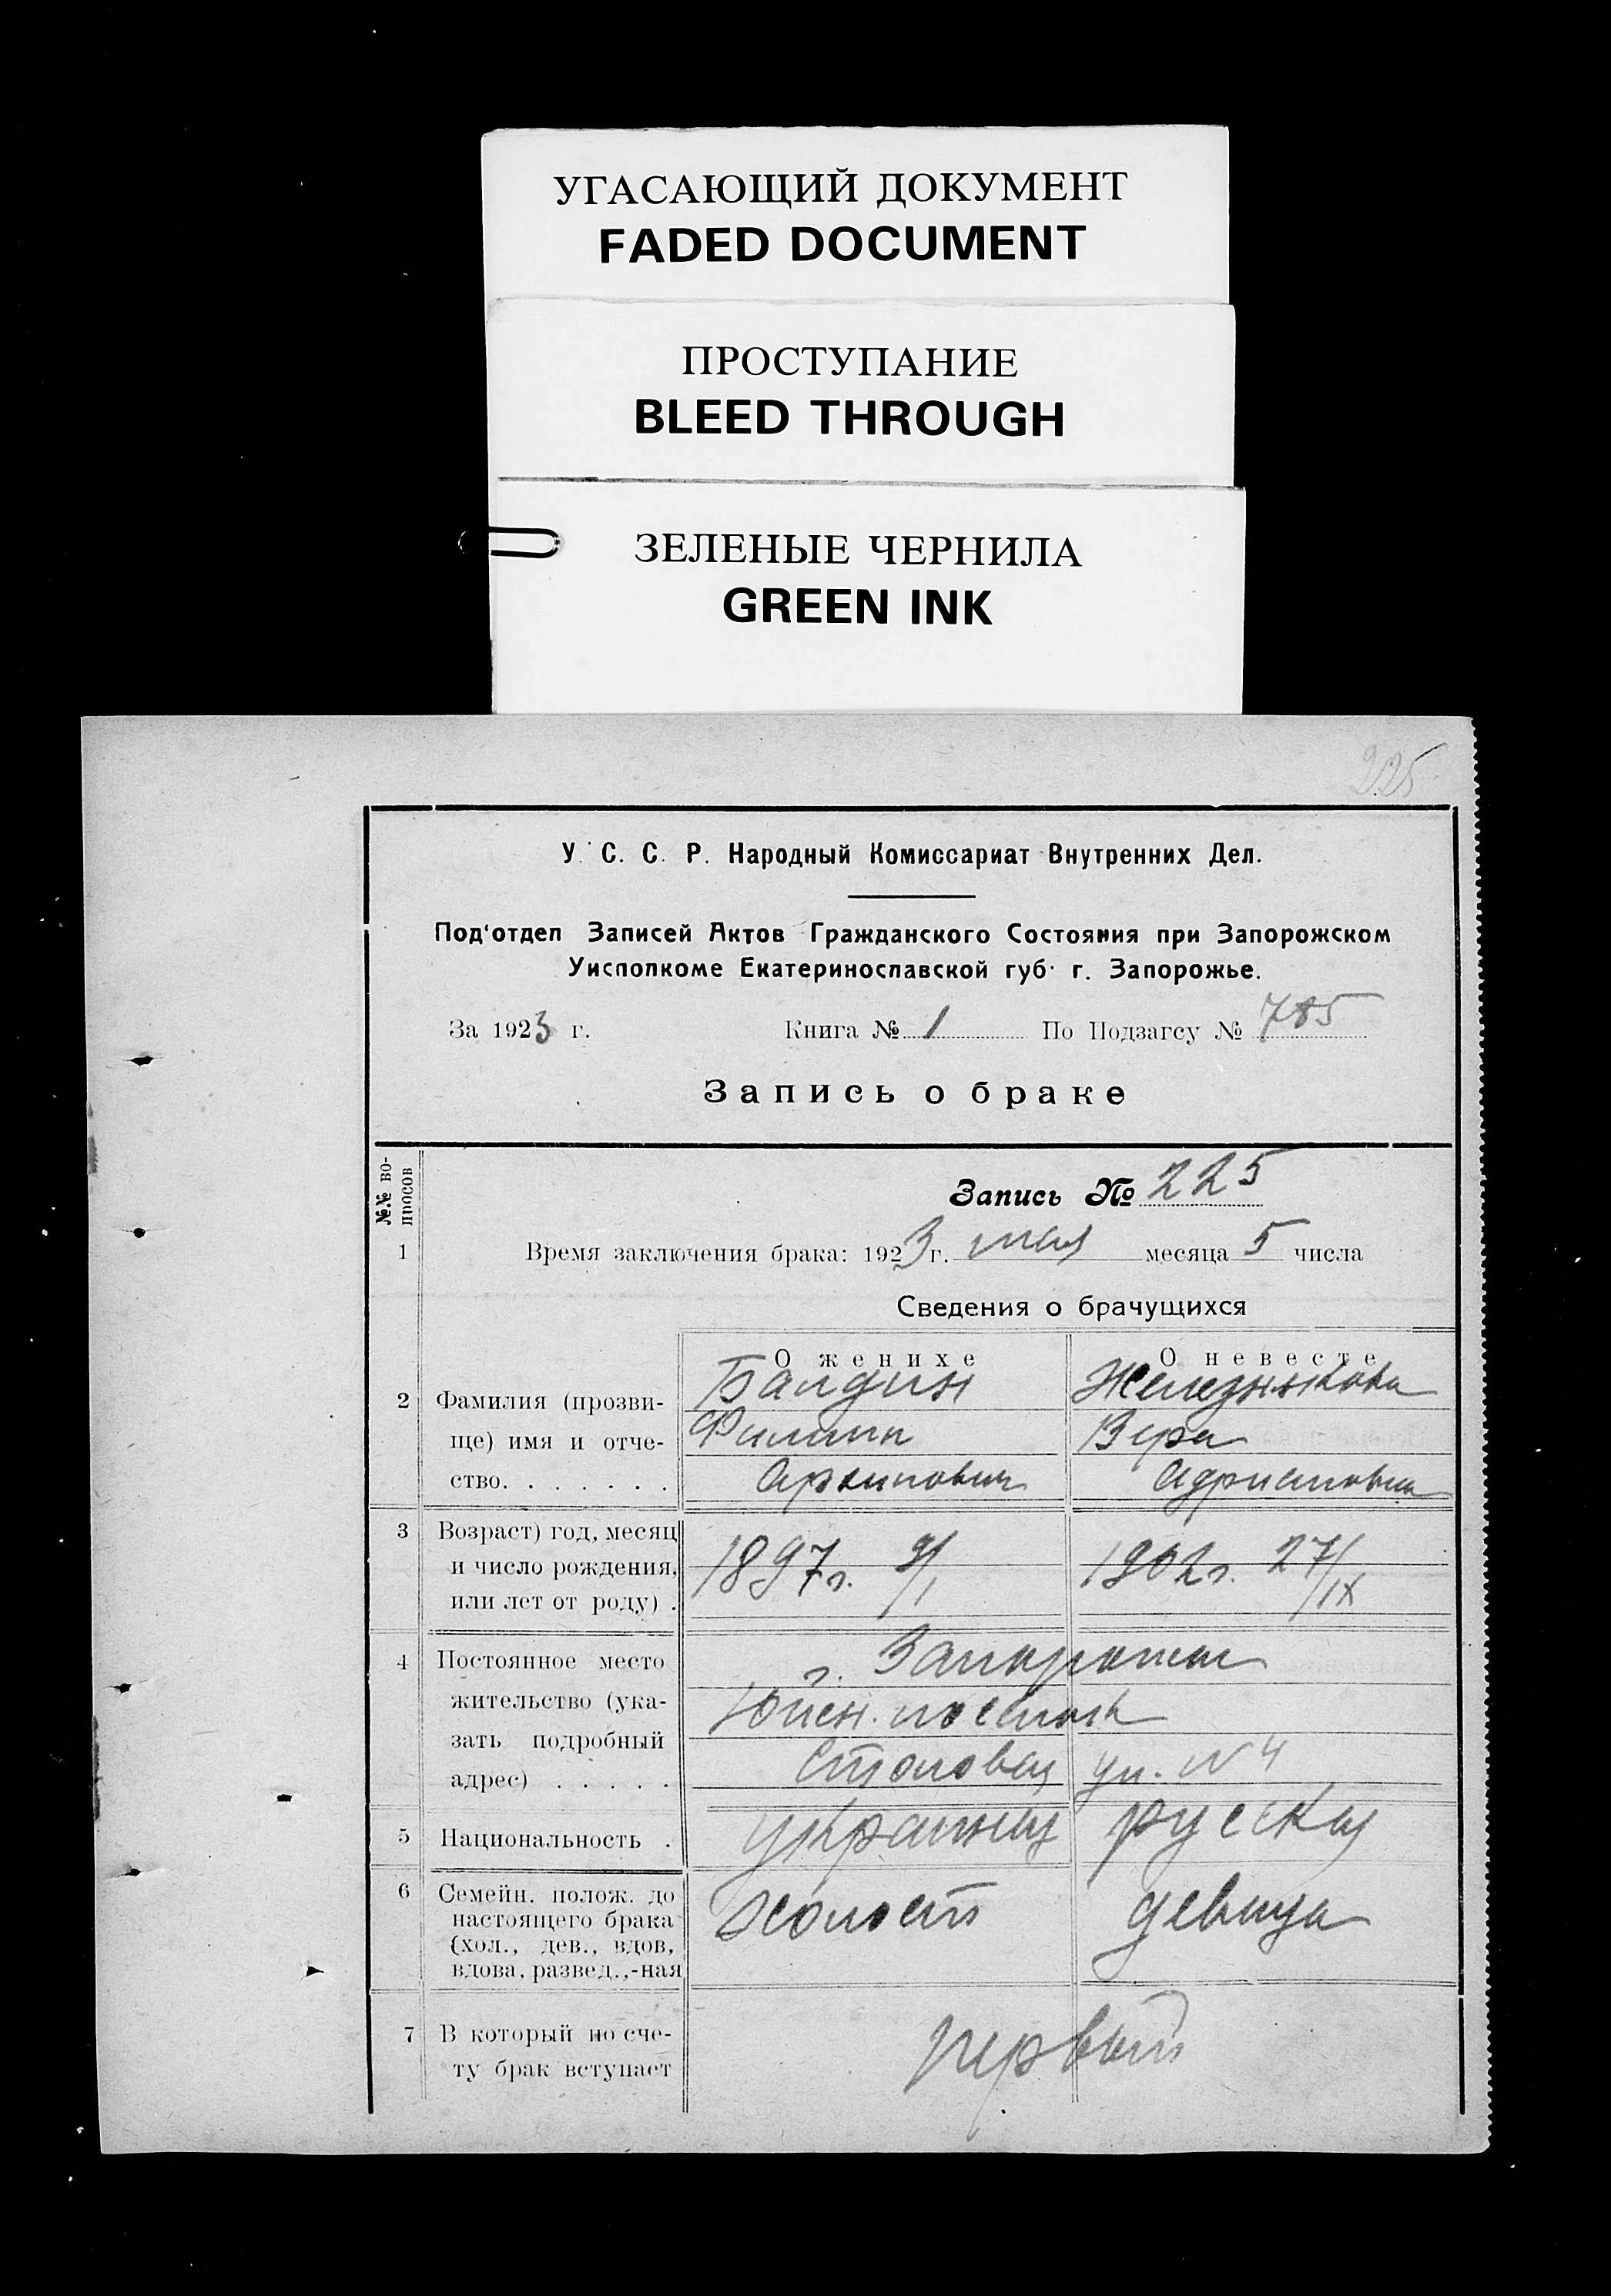 УГАСАЮЩИЙ ДОКУМЕНТ
FADED DOCUMENT
ПРОСТУПАНИЕ
BLEED THROUGH
ЗЕЛЕНЫЕ ЧЕРНИЛА
GREEN INK
225
У. С. С. Р. Народный Комиссариат Внутренних Дел.
Под'отдел Записей Актов Гражданского Состояния при Запорожском
Уисполкоме Екатеринославской губ. г. Запорожье.
За 1923 г. Книга № 1 По Подзагсу № 785
Запись о браке
№№ во-
просов
Запись № 225
1 Время заключения брака: 1923 г. мая месяца 5 числа
Сведения о брачущихся
О женихе О невесте
Балдин Железнякова
2 Фамилия (прозви-
ще) имя и отче- Филипп Вера
ство. . . . . . . Архипович Адриановна
3 Возраст) год, месяц
и число рождения, 1897 г. 9/I 1902 г. 27/IX
или лет от роду) .
4 Постоянное место г. Запорожье
жительство (ука- Южн. поселок
зать подробный Столовая ул. № 4
адрес) . . . . .
5 Национальность . украинец русская
6 Семейн. полож. до холост девица
настоящего брака
(хол., дев., вдов,
вдова, развед.,-ная
7 В который по сче- первый
ту брак вступает